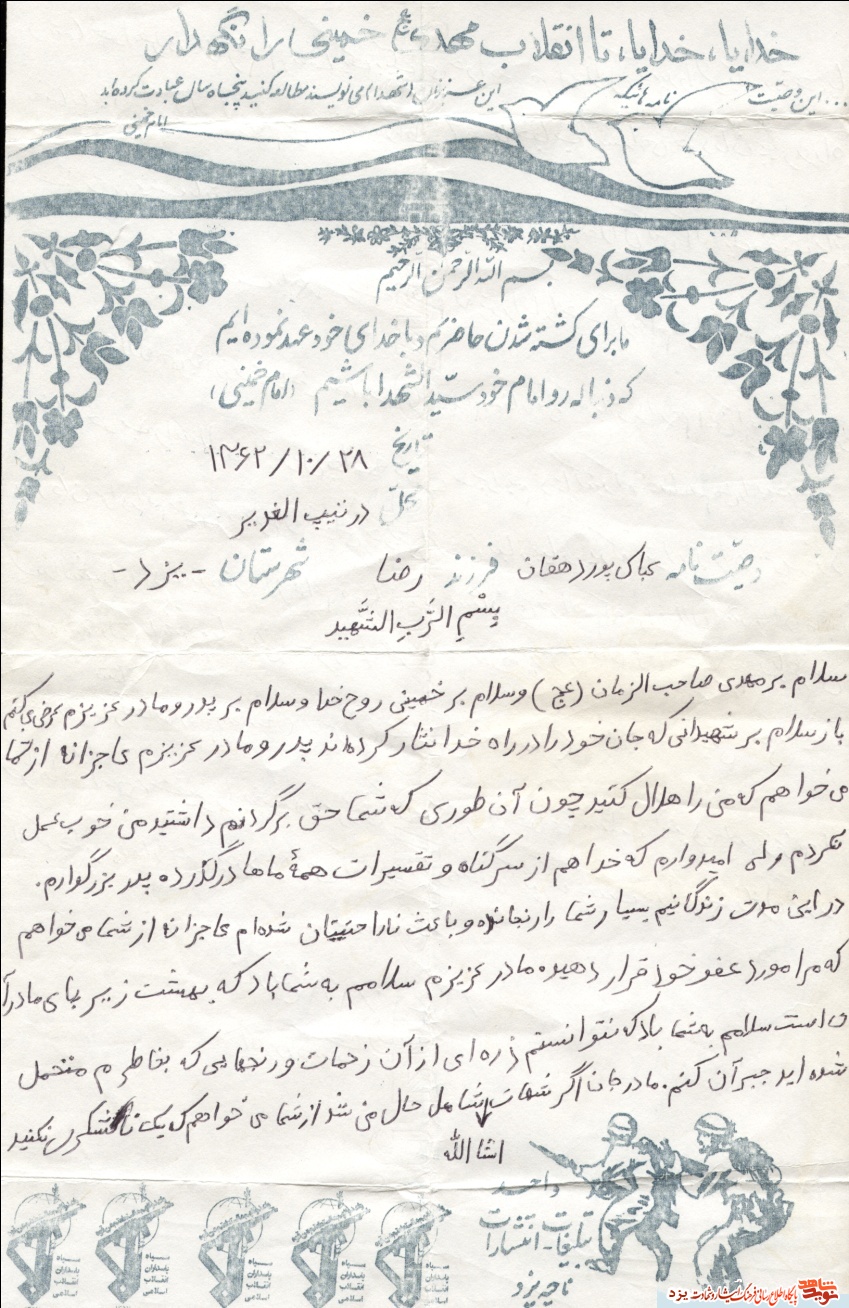 خدایا، خدایا، تا انقلاب مهدی عج خمینی را نگهدار
... این وصیت نامه هائیکه این عزیزان شهدا می نویسند مطالعه کنید پنجاه سال عبادت کرده اید
امام خمینی
بسم الله الرحمن الرحیم
ما برای کشته شدن حاضریم و با خدای خود عهد نموده ایم
که دنباله رو امام خود سید الشهدا باشیم (امام خمینی)
تاریخ ۱۳۶۲/۱۰/۲۸
محل در تیپ الغدیر
وصیت نامه عباس پوردهقان فرزند رضا شهرستان - یزد -
بِسْمِ الرَّبِ الشَّهید
سلام بر مهدی صاحب الزمان (عج) و سلام بر خمینی روح خدا و سلام بر پدر و مادر عزیزم عرض می کنم
باز سلام بر شهیدانی که جان خود را در راه خدا نثار کرده اند پدر و مادر عزیزم عاجزانه از شما
می خواهم که من را هلال کنید چون آن طوری که شما حق برگردنم داشتید من خوب عمل
نکردم ولی امیدوارم که خدا هم از سر گناه و تقسیرات همهٔ ماها درگذرد پدر بزرگوارم.
در این مدت زندگانیم بسیار شما را رنجانده و باعث ناراحتیتان شده ام عاجزانه از شما می خواهم
که مرا مورد عفو خود قرار دهید مادر عزیزم سلامم به شما باد که بهشت زیر پای مادرآ
ن است سلامم به شما باد که نتوانستم ذره ای از آن زحمات و رنجهایی که بخاطرم متحمل
شده اید جبرآن کنم. مادرجان اگر شهادت شامل حال من شد از شما می خواهم که یک ناشکری نکنید
انشا الله
واحد
تبلیغات - انتشارات
ناحیه یزد
سپاه پاسداران انقلاب اسلامی
سپاه پاسداران انقلاب اسلامی
سپاه پاسداران انقلاب اسلامی
سپاه پاسداران انقلاب اسلامی
سپاه پاسداران انقلاب اسلامی
نوید شاهد پایگاه اطلاع رسانی فرهنگ ایثار و شهادت یزد